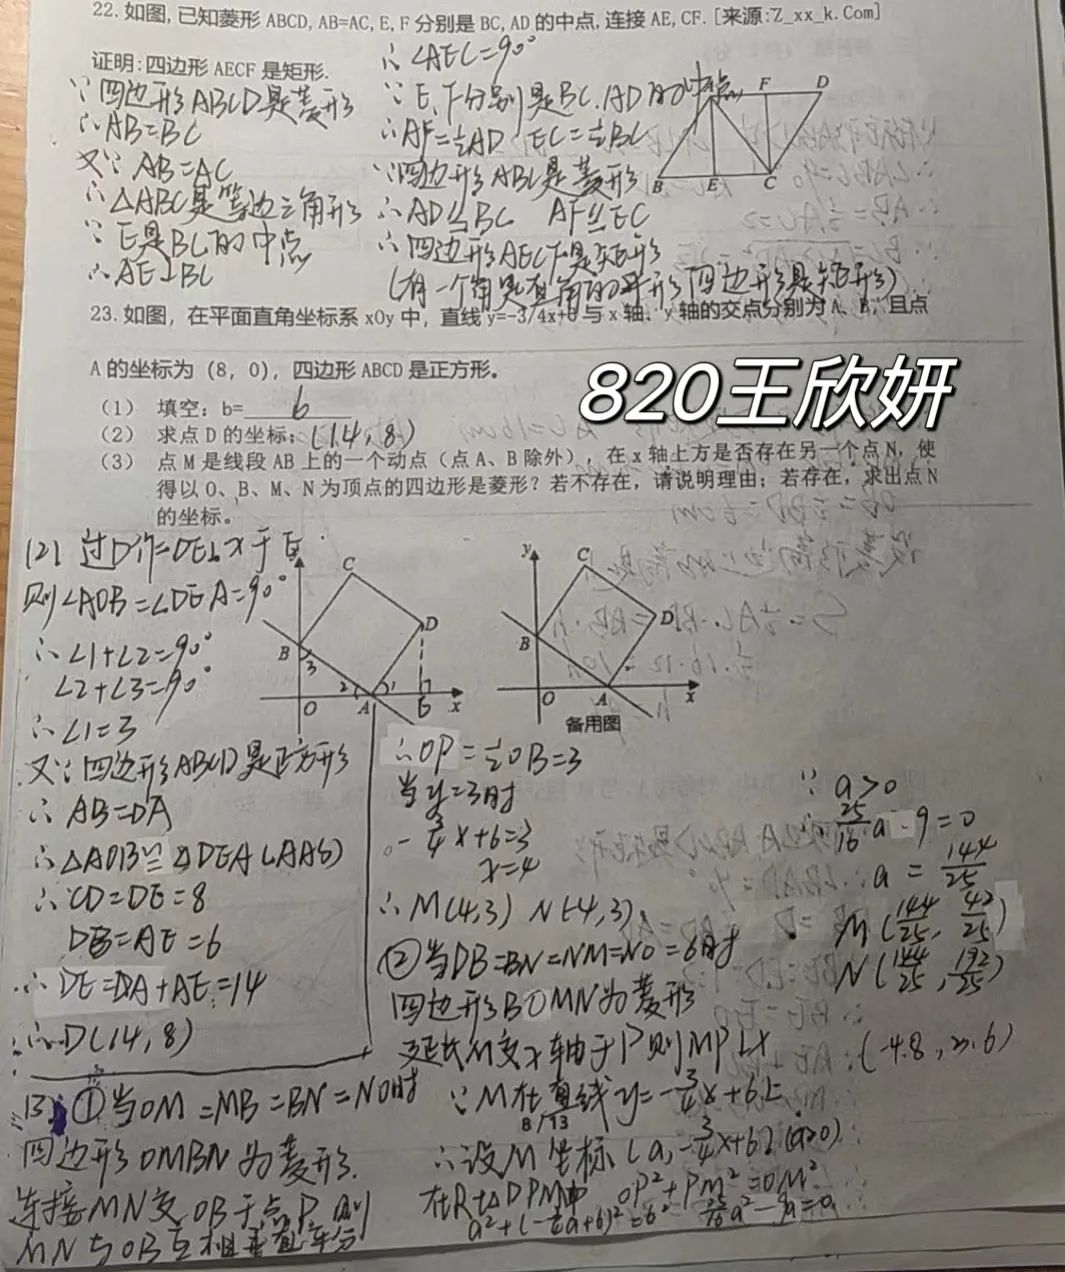 22.如图,已知菱形ABCD,AB=AC,E,F分别是BC,AD的中点,连接AE,CF.[来源:Z_xx_k.Com]
证明:四边形AECF是矩形.
∵四边形ABCD是菱形
∴AB=BC
又∵AB=AC
∴△ABC是等边三角形
∵E是BC的中点
∴AE⊥BC
∴∠AEC=90°
∵E、F分别是BC、AD的中点
∴AF=½AD EC=½BC
∵四边形ABC是菱形
∴AD⫽BC AF⫽EC
∴四边形AECF是矩形
(有一个角是直角的平行四边形是矩形)
F D
B E C
23.如图，在平面直角坐标系xOy中，直线y=-3/4x+b与x轴、y轴的交点分别为A、B，且点
A的坐标为（8，0），四边形ABCD是正方形。
820王欣妍
（1） 填空：b=6
（2） 求点D的坐标；(14,8)
（3） 点M是线段AB上的一个动点（点A、B除外），在x轴上方是否存在另一个点N，使
得以O、B、M、N为顶点的四边形是菱形？若不存在，请说明理由；若存在，求出点N
的坐标。
(2) 过D作DE⊥x于E
则∠AOB=∠DEA=90°
∴∠1+∠2=90°
∠2+∠3=90°
∴∠1=3
又∵四边形ABCD是正方形
∴AB=DA
∴△AOB≌△DEA(AAS)
∴OD=DE=8
OB=AE=6
∴OE=OA+AE=14
∴D(14,8)
C
D
B 3
2 1
O A E x
y C
D
B
O A x
备用图
(3)①当OM=MB=BN=NO时
四边形OMBN为菱形.
连接MN交OB于点P则
MN与OB互相垂直平分
∴OP=½OB=3
当y=3时
-¾x+6=3
x=4
∴M(4,3) N(-4,3)
②当OB=BN=NM=NO=6时
四边形BOMN为菱形
延长M交x轴于P则MP⊥x
∵M在直线y=-¾x+6上
8/13
∴设M坐标(a,-¾x+6)(a>0)
在Rt△OPM中 OP²+PM²=OM²
a²+(-¾a+6)²=6² 25/16a²-9a=0
∵a>0
∴25/16a-9=0
a=144/25
M(144/25,42/25)
N(144/25,192/25)